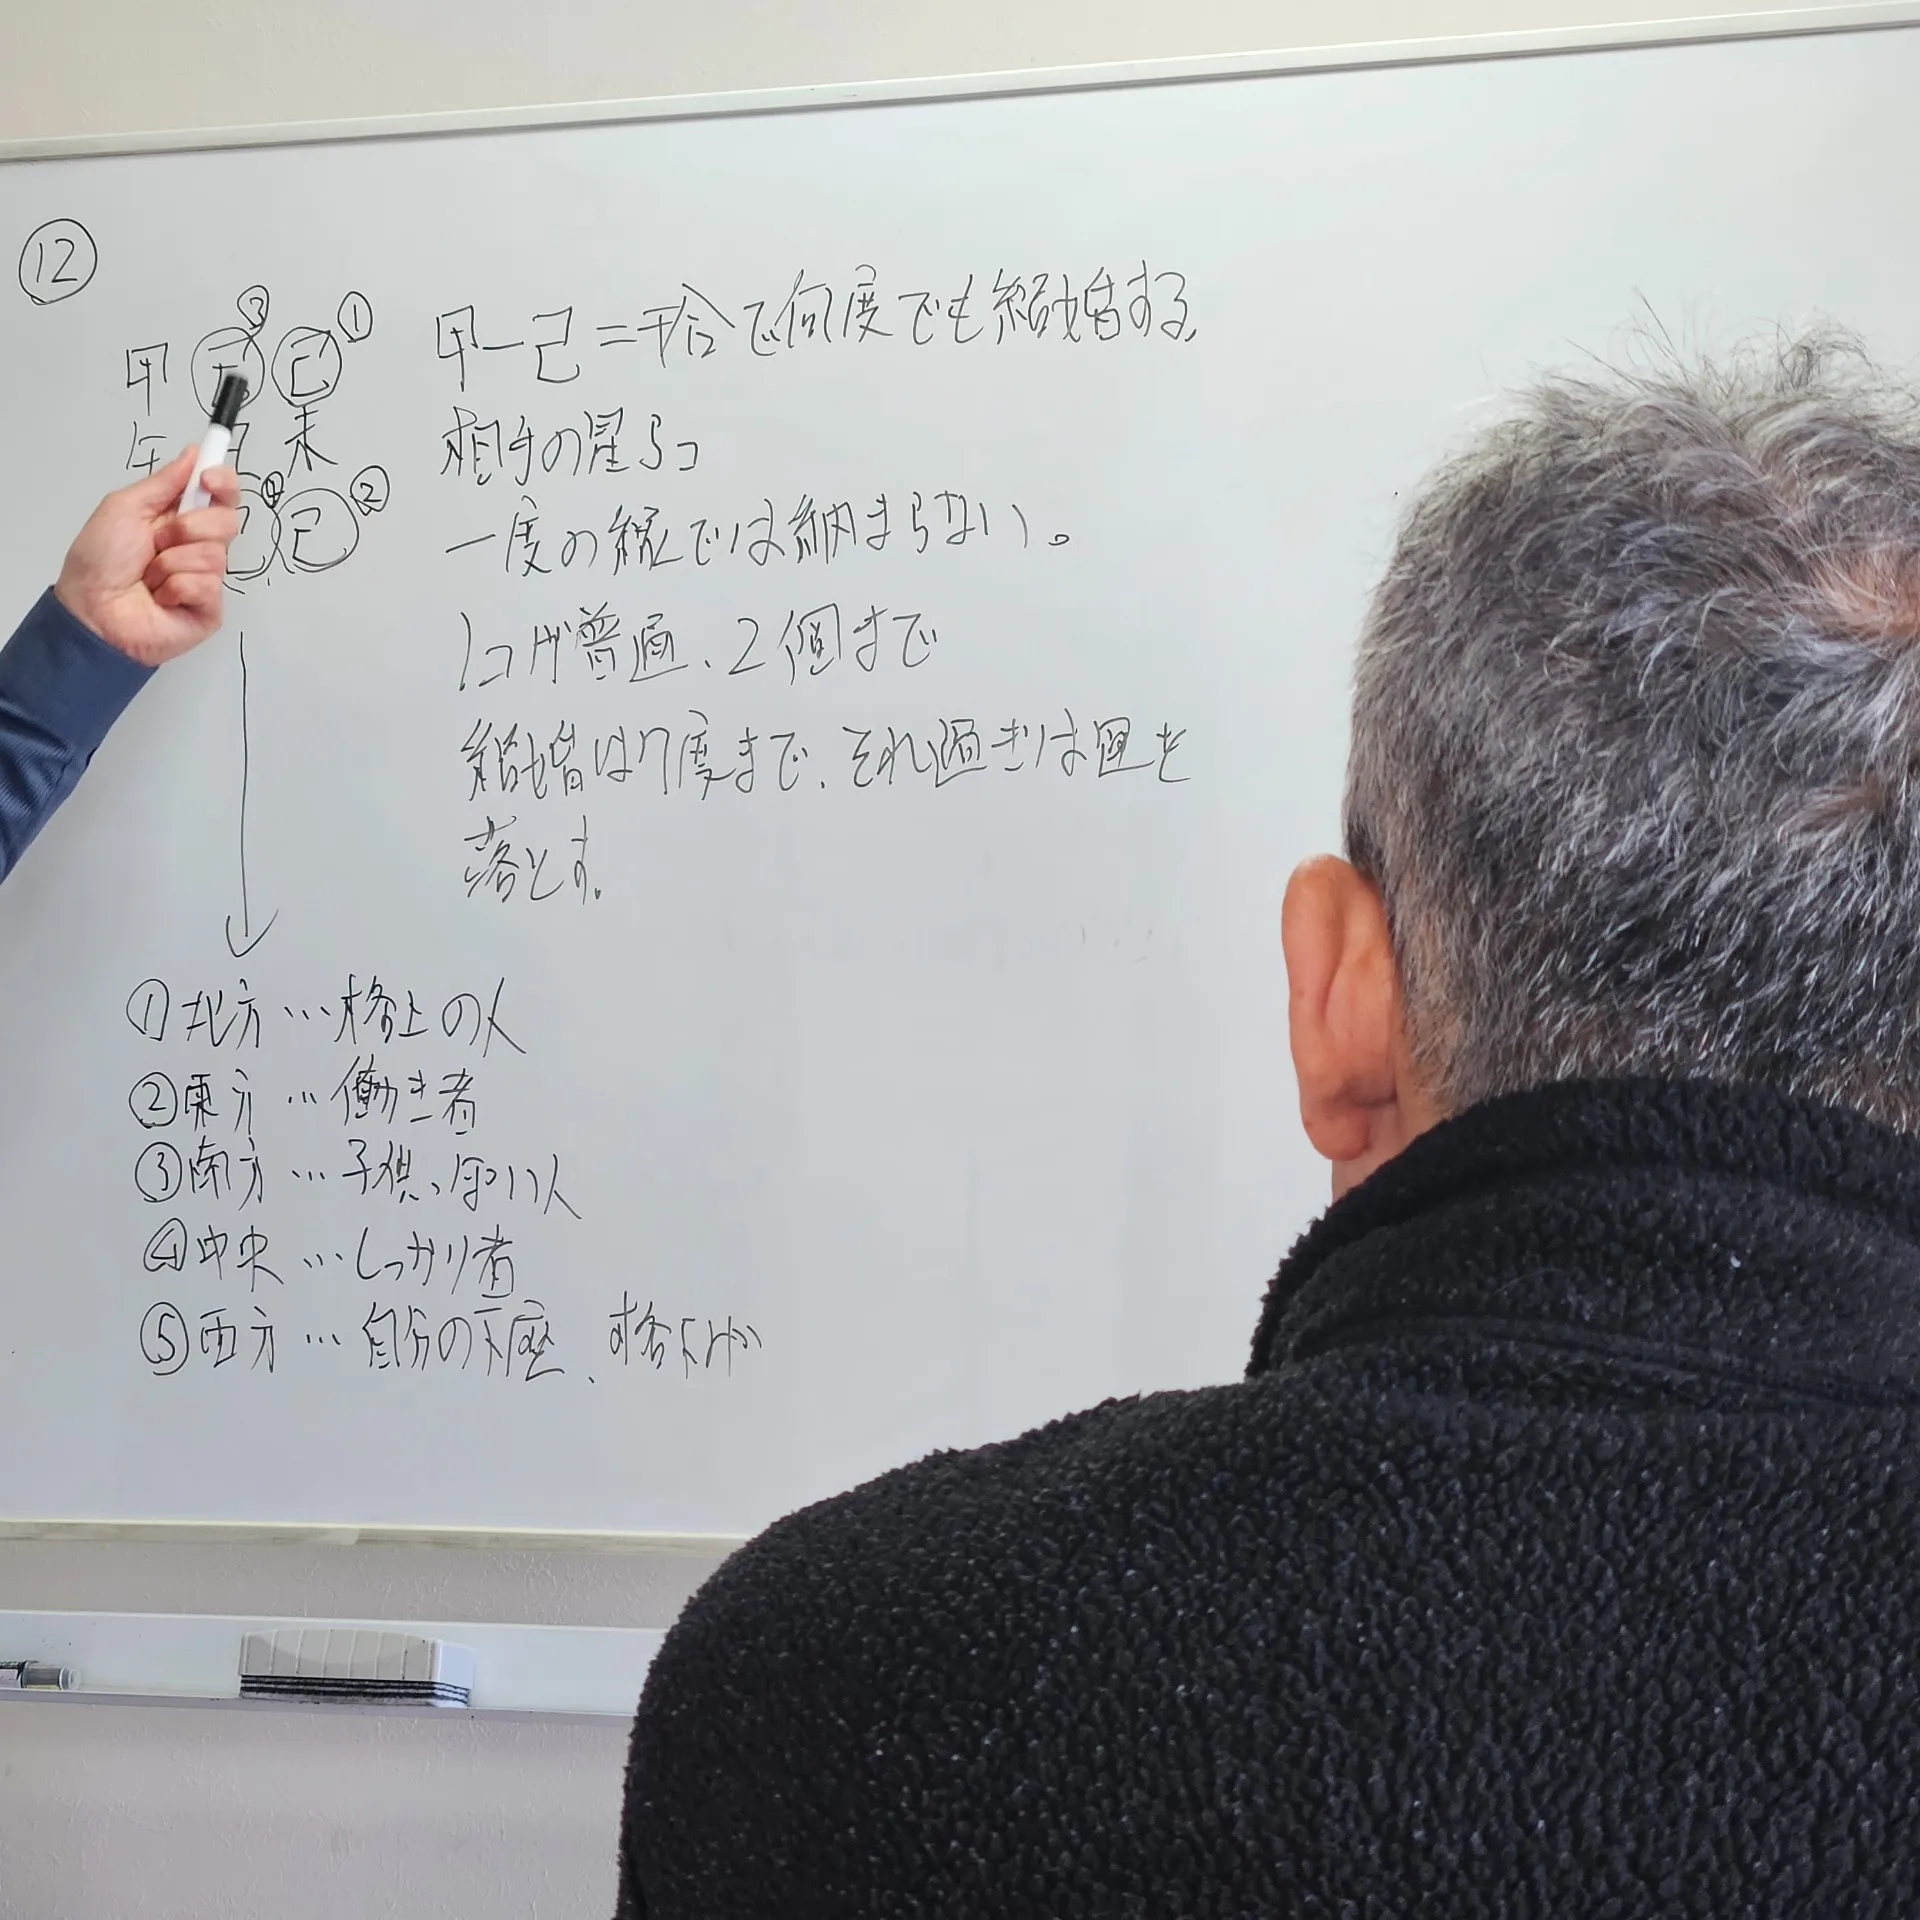 ⑫
③ ①
甲 己 己
午 丑 未
④ ②
己 己
甲―己=干合で何度でも結婚する
相手の星5コ
一度の縁では納まらない。
1コが普通、2個まで
結婚は7度まで、それ過ぎは運を
落とす。
①北方…格上の人
②東方…働き者
③南方…子供っぽい人
④中央…しっかり者
⑤西方…自分の下座、格下か